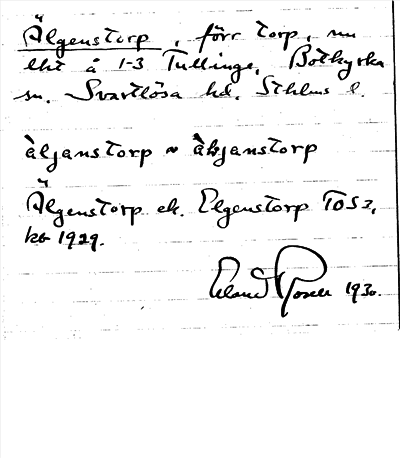 Älgenstorp, förr torp, nu
lht å 1-3 Tullinge, Botkyrka
sn. Svartlösa hd. Sthlms l.
àljanstorp ~ àljanstorp
Älgenstorp ek. Elgenstorp TOS2,
kb 1929.
Erland Rosell 1930.